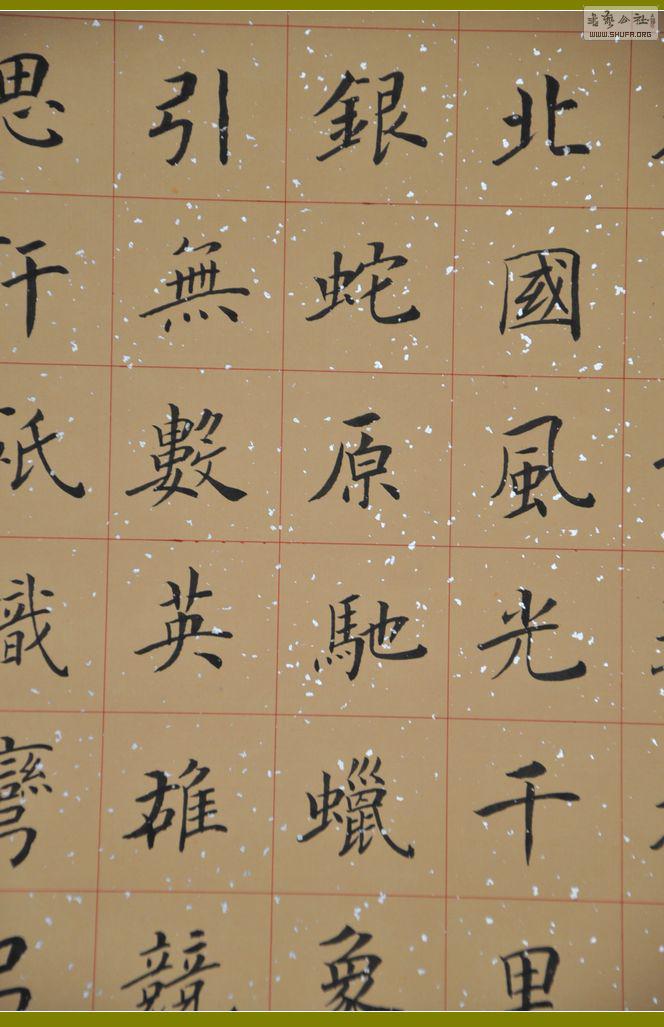 北國風光千里
銀蛇原馳蠟象
引無數英雄競
思汗祇識彎弓
書藝公社
WWW.SHUFA.ORG